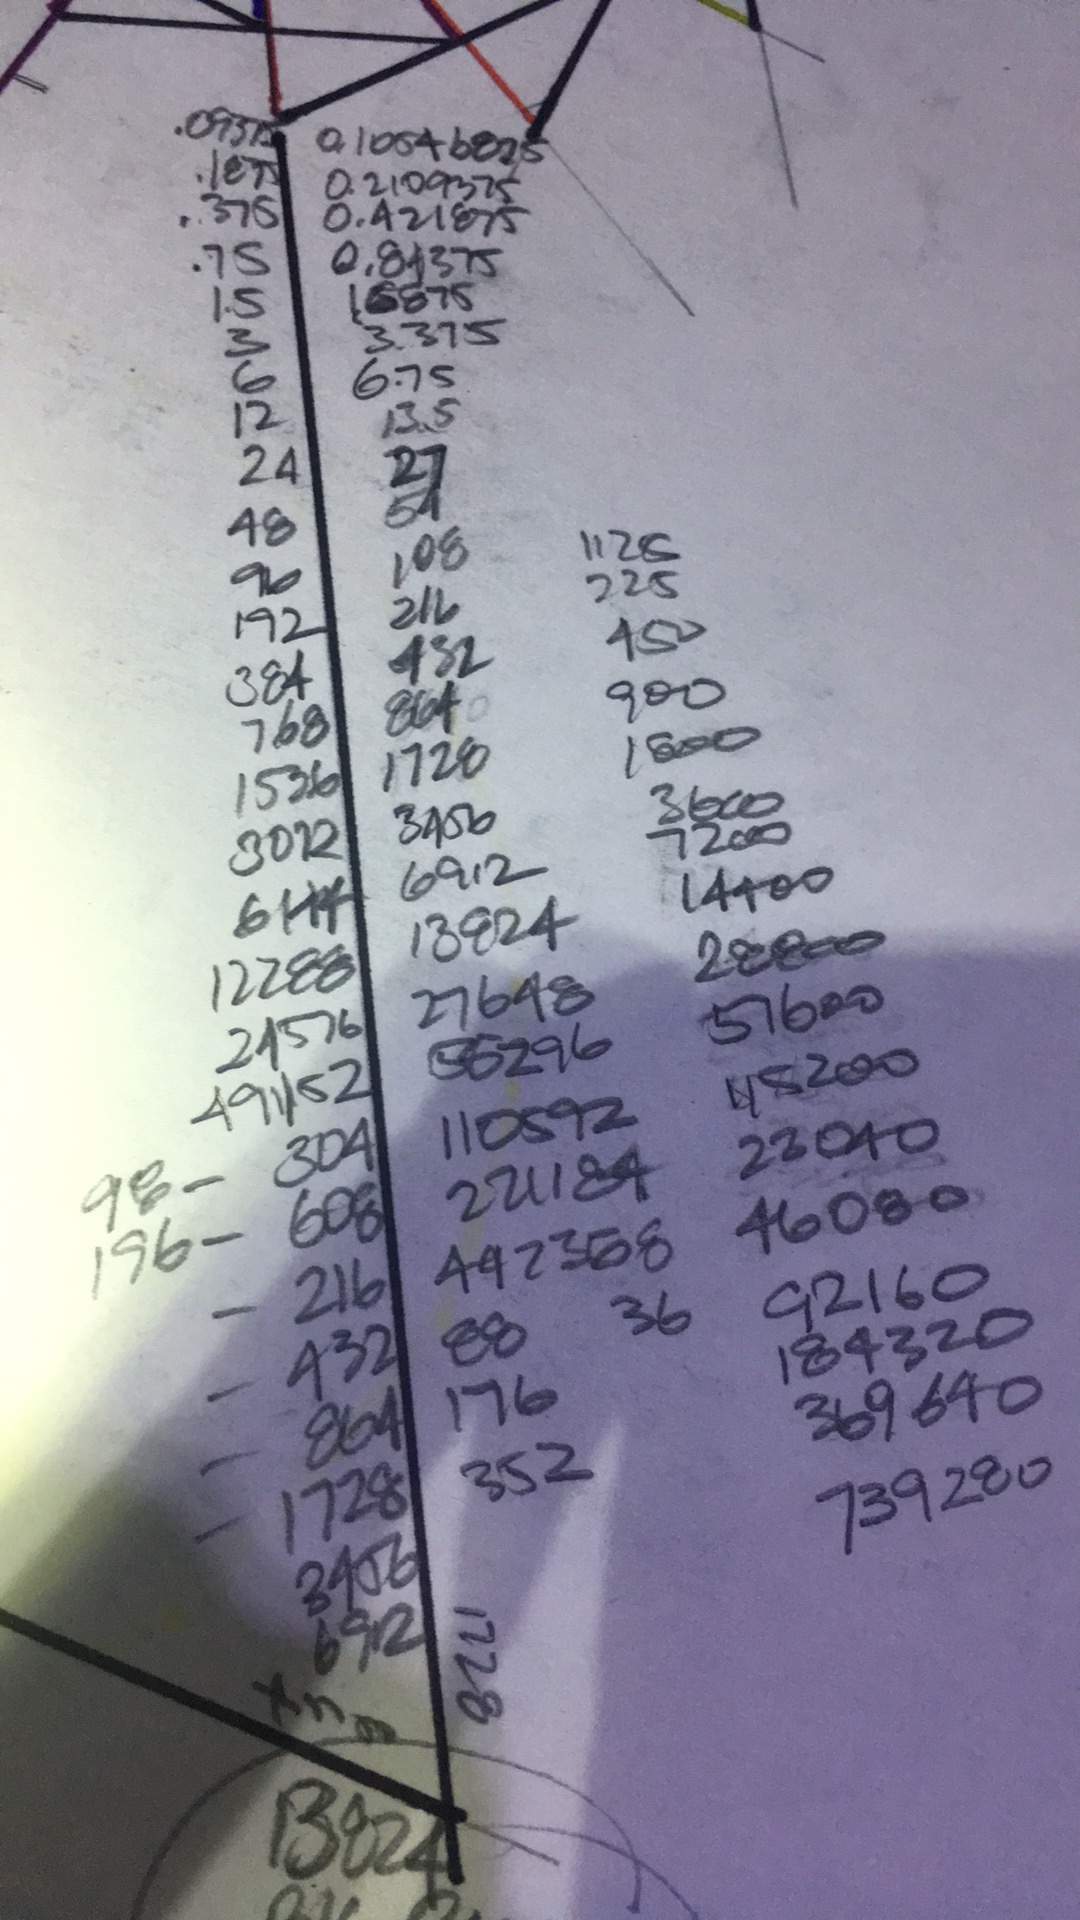 .09375 0.10546825
.1875 0.2109375
.375 0.421875
.75 0.84375
1.5 1.6875
3 3.375
6 6.75
12 13.5
24 27
48 54
96 108 1125
192 216 225
384 432 450
768 864 900
1536 1728 1800
3072 3456 3600
6144 6912 7200
12288 13824 14400
24576 27648 28800
49152 55296 57600
98- 304 110592 115200
196- 608 221184 23040
- 216 442368 46080
- 432 88 36 92160
- 864 176 184320
- 1728 352 369640
3456 739280
6912
1728
13824